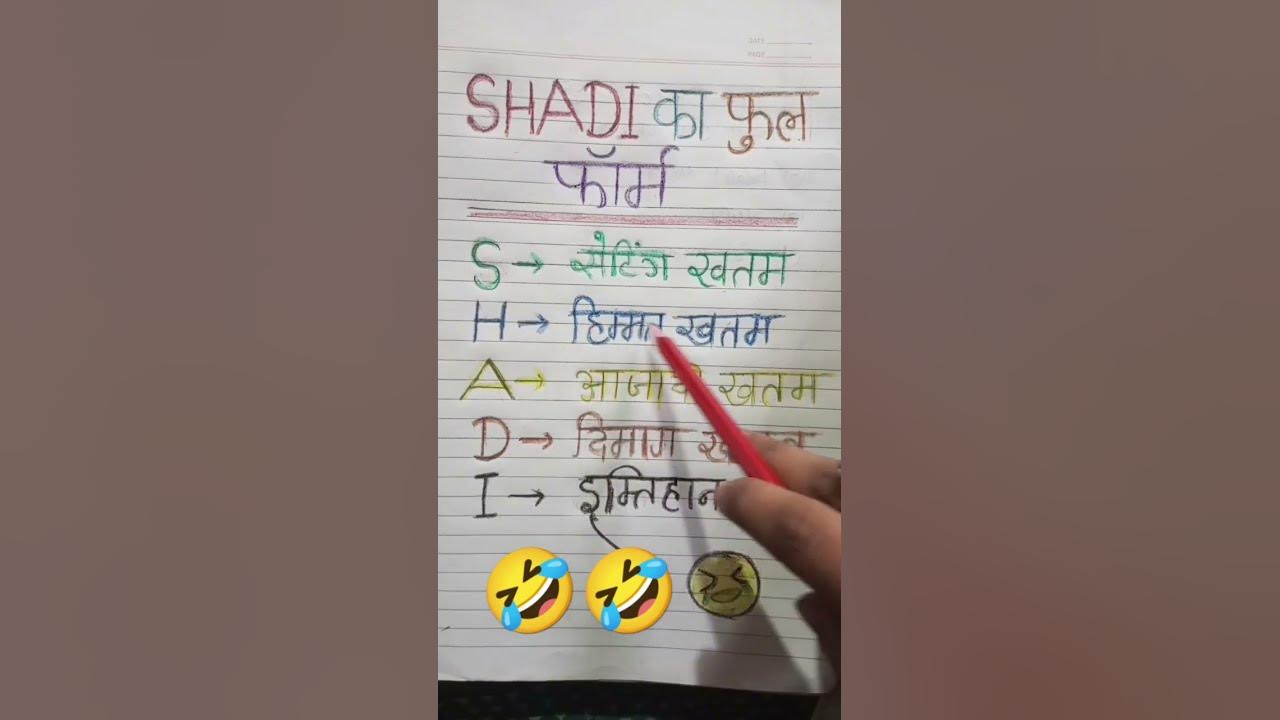 DATE
PAGE
SHADI का फुल
फॉर्म
S → सेटिंग खतम
H → हिम्मत खतम
A → आजादी खतम
D → दिमाग
I → इम्तिहान